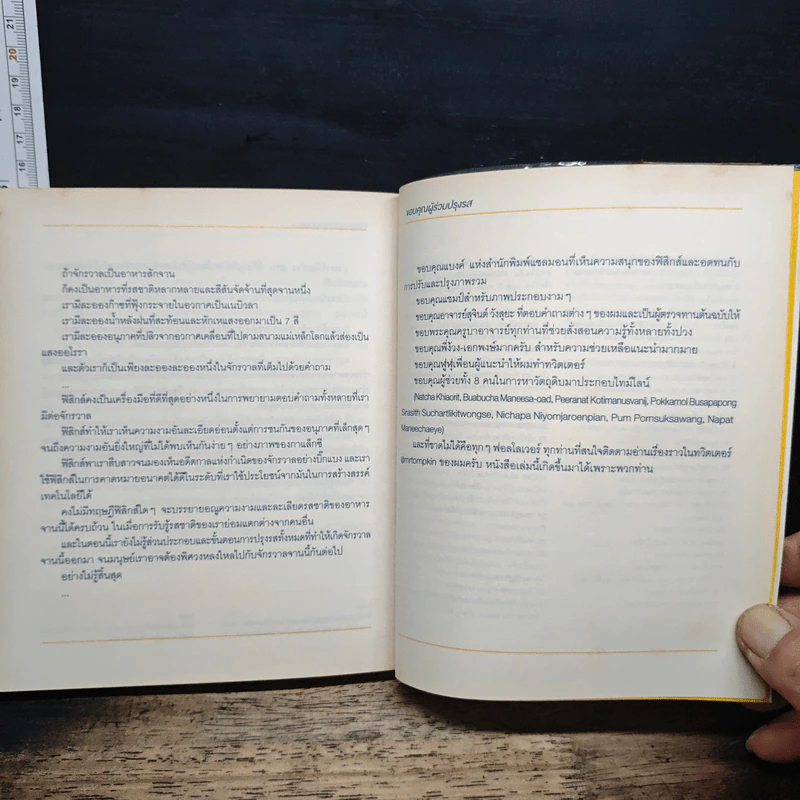 21
20
19
18
17
16
ถ้าจักรวาลเป็นอาหารสักจาน
ก็คงเป็นอาหารที่รสชาติหลากหลายและสีสันจัดจ้านที่สุดจานหนึ่ง
เรามีละอองก๊าซที่ฟุ้งกระจายในอวกาศเป็นเนบิวลา
เรามีละอองน้ำหลังฝนที่สะท้อนและหักเหแสงออกมาเป็น 7 สี
เรามีละอองอนุภาคที่ปลิวจากอวกาศเคลื่อนที่ไปตามสนามแม่เหล็กโลกแล้วส่องเป็น
แสงออโรรา
และตัวเราก็เป็นเพียงละอองละอองหนึ่งในจักรวาลที่เต็มไปด้วยคำถาม
...
ฟิสิกส์คงเป็นเครื่องมือที่ดีที่สุดอย่างหนึ่งในการพยายามตอบคำถามทั้งหลายที่เรา
มีต่อจักรวาล
ฟิสิกส์ทำให้เราเห็นความงามอันละเอียดอ่อนตั้งแต่การชนกันของอนุภาคที่เล็กสุด ๆ
จนถึงความงามอันยิ่งใหญ่ที่ไม่ได้พบเห็นกันง่าย ๆ อย่างภาพของกาแล็กซี
ฟิสิกส์พาเราสืบสาวจนมองเห็นอดีตกาลแห่งกำเนิดของจักรวาลอย่างบิ๊กแบง และเรา
ใช้ฟิสิกส์ในการคาดหมายอนาคตได้ดีในระดับที่เราใช้ประโยชน์จากมันในการสร้างสรรค์
เทคโนโลยีได้
คงไม่มีทฤษฎีฟิสิกส์ใด ๆ จะบรรยายอณูความงามและละเลียดรสชาติของอาหาร
จานนี้ได้ครบถ้วน ในเมื่อการรับรู้รสชาติของเราย่อมแตกต่างจากคนอื่น
และในตอนนี้เรายังไม่รู้ส่วนประกอบและขั้นตอนการปรุงรสทั้งหมดที่ทำให้เกิดจักรวาล
จานนี้ออกมา จนมนุษย์เราอาจต้องพิศวงหลงใหลไปกับจักรวาลจานนี้กันต่อไป
อย่างไม่รู้สิ้นสุด
...
ขอบคุณผู้ร่วมปรุงรส
ขอบคุณแบงค์ แห่งสำนักพิมพ์แซลมอนที่เห็นความสนุกของฟิสิกส์และอดทนกับ
การปรับและปรุงภาพรวม
ขอบคุณแชมป์สำหรับภาพประกอบงาม ๆ
ขอบคุณอาจารย์สุจินต์ วังสุยะ ที่ตอบคำถามต่าง ๆ ของผมและเป็นผู้ตรวจทานต้นฉบับให้
ขอบพระคุณครูบาอาจารย์ทุกท่านที่ช่วยสั่งสอนความรู้ทั้งหลายทั้งปวง
ขอบคุณพี่ง้วง-เอกพงษ์มากครับ สำหรับความช่วยเหลือแนะนำมากมาย
ขอบคุณฟูฟูเพื่อนผู้แนะนำให้ผมทำทวิตเตอร์
ขอบคุณผู้ช่วยทั้ง 8 คนในการหาวัตถุดิบมาประกอบไทม์ไลน์
(Natcha Khiaorit, Buabucha Maneesa-oad, Peeranat Kotimanusvanij, Pokkamol Busapapong
Sirasith Suchartlikitwongse, Nichapa Niyomjaroenpian, Purn Pornsuksawang, Napat
Maneechaeye)
และที่ขาดไม่ได้คือทุกๆ ฟอลโลเวอร์ ทุกท่านที่สนใจติดตามอ่านเรื่องราวในทวิตเตอร์
@mrtompkin ของผมครับ หนังสือเล่มนี้เกิดขึ้นมาได้เพราะพวกท่าน